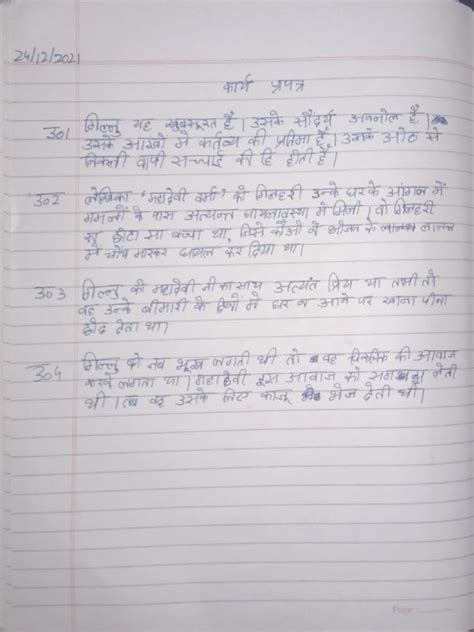 24/12/2021
कार्य प्रपत्र
उ०1 गिल्लू यह खुबसूरत है। उसके सौंदर्य अनमोल है।
उसके आखों मे कर्तव्य की प्रतिमा है। उसके ओठ से
निकली वाणी सच्चाई की हि होती है।
उ०2 लेखिका 'महादेवी वर्मा' को गिलहरी उनके घर के आंगन में
गमलों के पास अत्यन्त घायलावस्था में मिली। वो गिलहरी
का छोटा सा बच्चा था, जिसे कौओं ने भोजन के लालच
में चोंच मारकर घायल कर दिया था।
उ०3 गिल्लू को महादेवी जी का साथ अत्यंत प्रिय था तभी तो
वह उनके बीमारी के दिनों में घर न आने पर खाना पीना
छोड देता था।
उ०4 गिल्लू को जब भूख लगती थी तो वह चिकचिक की आवाज
करने लगता था। महादेवी इस आवाज को समझ लेती
थी। तब वह उसके लिए काजू भेज देती थी।
Page